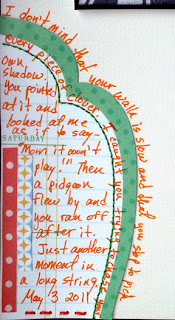 I don't mind that your walk is slow and that you stop to pick
every piece of clover. I caught you trying to chase your
own
shadow.
you pointed
at it and
looked at me
as if to say-
SATURDAY
"Mom it won't
play!" Then
a pidgeon
flew by and
you ran off
after it.
Just another
moment in
a long string.
May, 3 2011